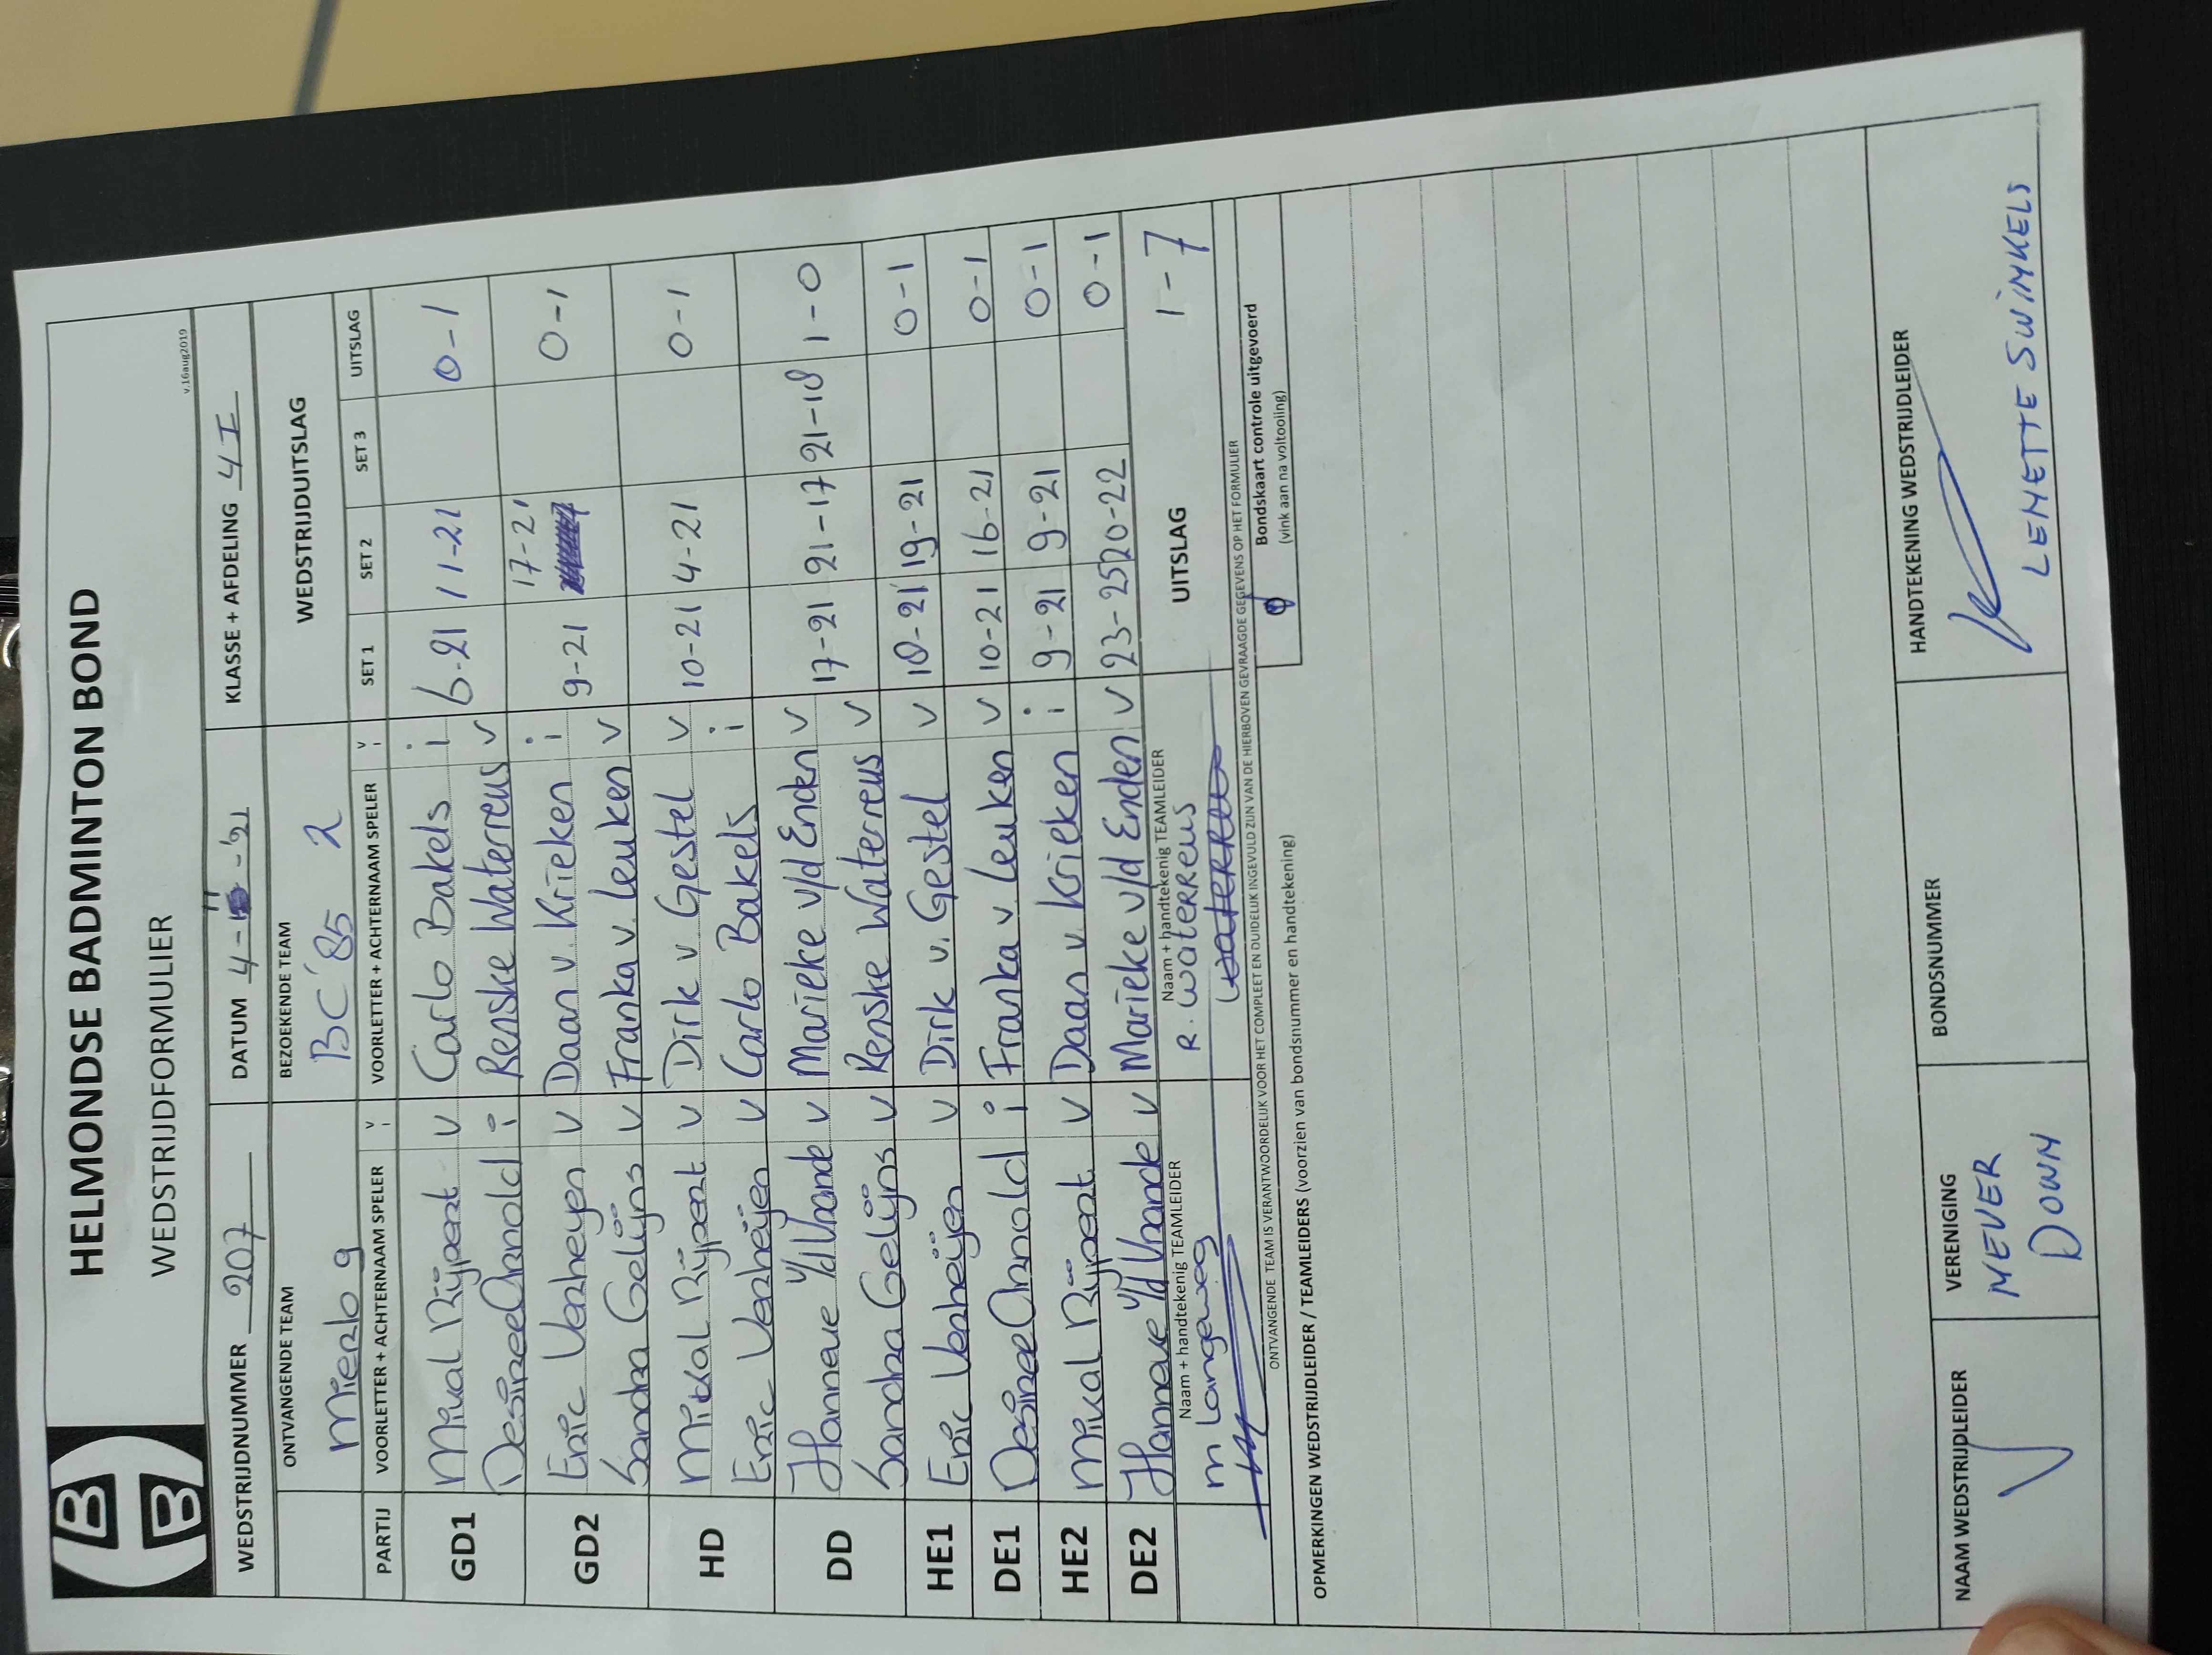 HELMONDSE BADMINTON BOND
WEDSTRIJDFORMULIER
v.16aug2019
WEDSTRIJDNUMMER 207 DATUM 4-11-'21 KLASSE + AFDELING 4I
ONTVANGENDE TEAM BEZOEKENDE TEAM WEDSTRIJDUITSLAG
Mierlo 9 BC '85 2
PARTIJ VOORLETTER + ACHTERNAAM SPELER v i VOORLETTER + ACHTERNAAM SPELER v i SET 1 SET 2 SET 3 UITSLAG
GD1 Rijpert v Carlo Bakels i 6-21 11-21 0-1
Desiree Arnold i Renske Waterreus v
GD2 Eric Verheyen v Daan v. Krieken i 9-21 17-21 0-1
Sandra Gelijns v Franka v. Leuken v
HD Rijpert v Dirk v Gestel v 10-21 4-21 0-1
Eric Verheijen v Carlo Bakels i
DD v/d Vrande v Marieke v/d Enden v 17-21 21-17 21-18 1-0
Sandra Gelijns v Renske Waterreus v
HE1 Eric Verheijen v Dirk v. Gestel v 18-21 19-21 0-1
DE1 Desiree Arnold i Franka v. Leuken v 10-21 16-21 0-1
HE2 Rijpert v Daan v. Krieken i 9-21 9-21 0-1
DE2 v/d Vrande v Marieke v/d Enden v 23-25 20-22 0-1
Naam + handtekenig TEAMLEIDER Naam + handtekenig TEAMLEIDER UITSLAG 1-7
m Langeweg R. Waterreus
ONTVANGENDE TEAM IS VERANTWOORDELIJK VOOR HET COMPLEET EN DUIDELIJK INGEVULD ZIJN VAN DE HIERBOVEN GEVRAAGDE GEGEVENS OP HET FORMULIER
Bondskaart controle uitgevoerd
(vink aan na voltooiing)
OPMERKINGEN WEDSTRIJDLEIDER / TEAMLEIDERS (voorzien van bondsnummer en handtekening)
NAAM WEDSTRIJDLEIDER VERENIGING BONDSNUMMER HANDTEKENING WEDSTRIJDLEIDER
NEVER
DOWN
LENETTE SWINKELS